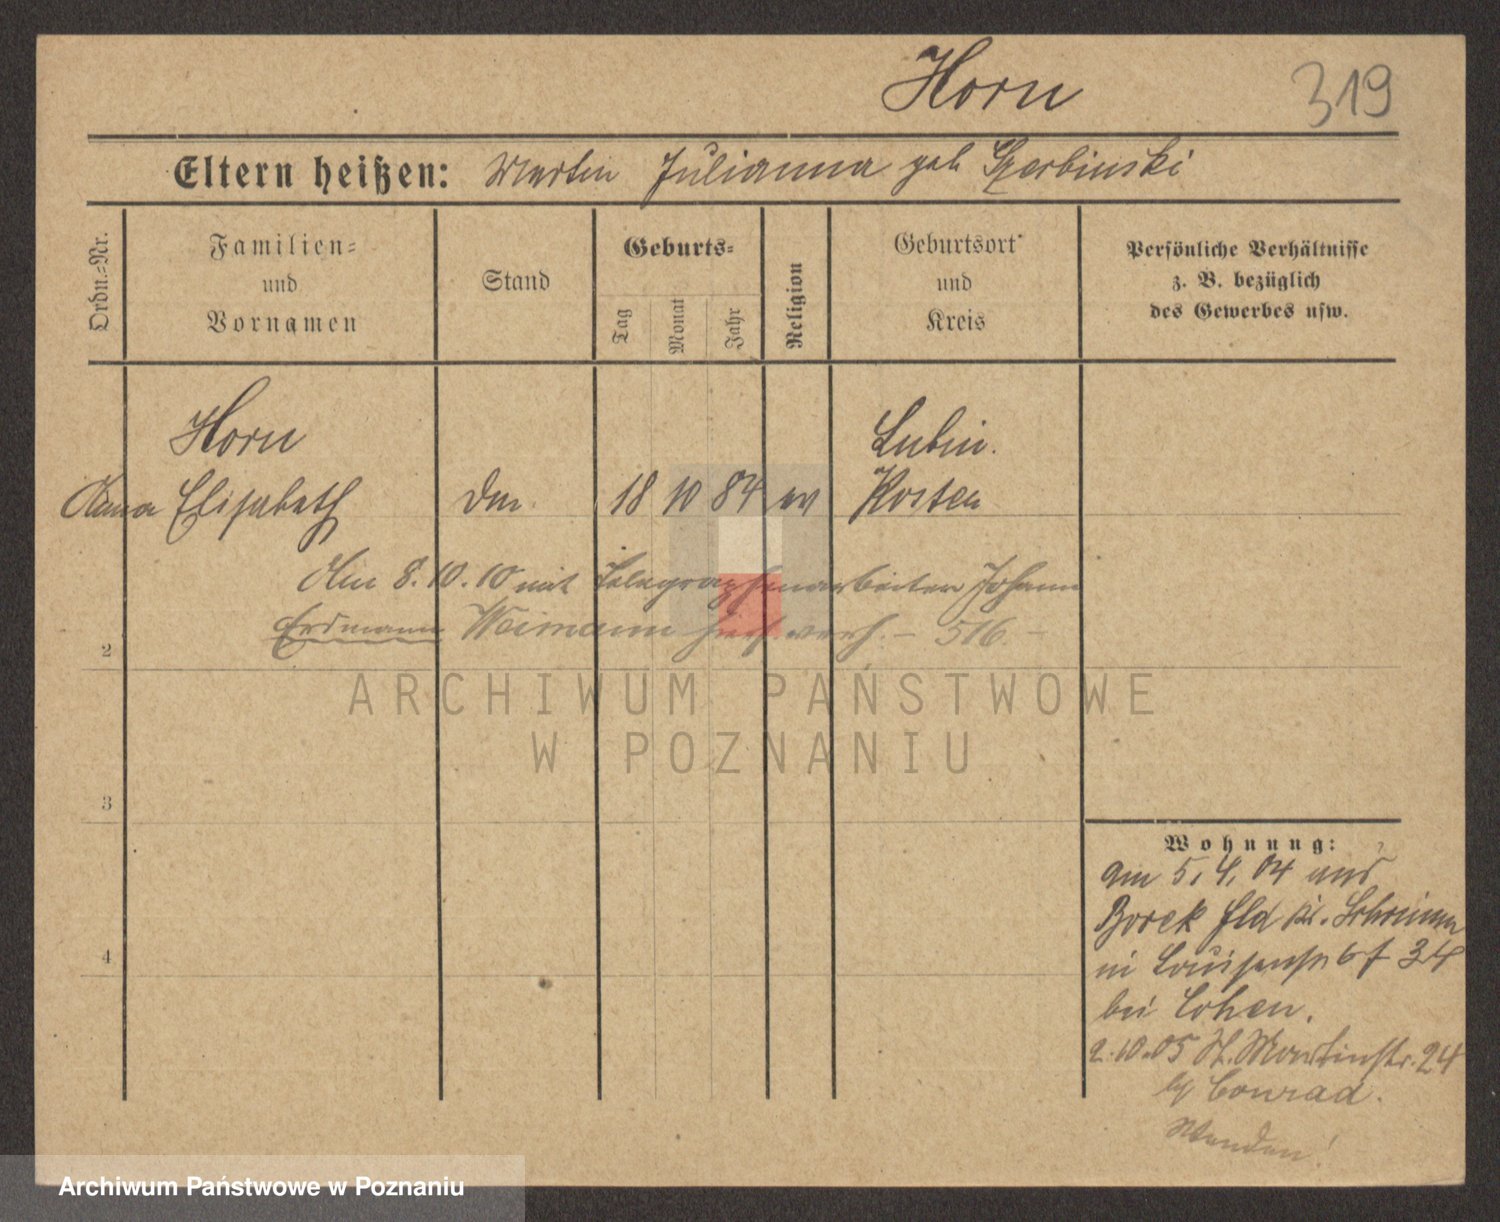 Horn
319
Eltern heißen: Martin Julianna geb Szerbinski
Ordn.=Nr.
Familien=
und
Vornamen
Stand
Geburts=
Tag
Monat
Jahr
Religion
Geburtsort
und
Kreis
Persönliche Verhältnisse
z. B. bezüglich
des Gewerbes usw.
Horn
Anna Elisabeth
18 10 84 ev
Lubin.
Kosten
Am 8.10.10 mit Telegraphenarbeiter Johann
Erdmann Weimann hier verh. – 516. –
2
3
4
Wohnung:
am 5.4.04 aus
Borek Hld Kr. Schrimm
in Louisenstr 34
bei Cohen.
2.10.05 St. Martinstr. 24
bei Conrad.
Wenden!
ARCHIWUM PAŃSTWOWE
W POZNANIU
Archiwum Państwowe w Poznaniu